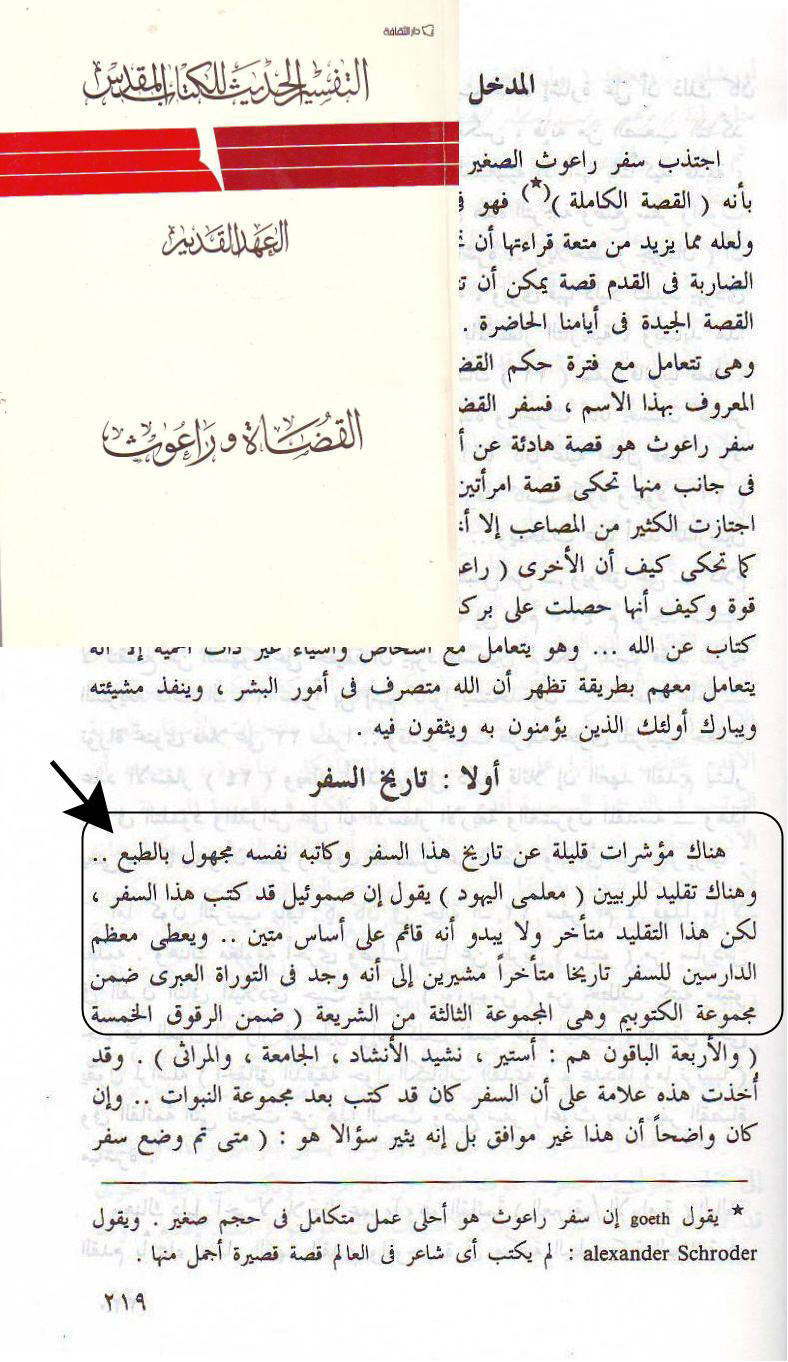 دار الثقافة
التفسير الحديث للكتاب المقدس
العهد القديم
القضاة وراعوث
المدخل
اجتذب سفر راعوث الصغير
بأنه ( القصة الكاملة )(★) فهو
ولعله مما يزيد من متعة قراءتها أن
الضاربة فى القدم قصة يمكن أن
القصة الجيدة فى أيامنا الحاضرة .
وهى تتعامل مع فترة حكم
المعروف بهذا الاسم ، فسفر
سفر راعوث هو قصة هادئة عن
فى جانب منها تحكى قصة امرأتين
اجتازت الكثير من المصاعب إلا
كما تحكى كيف أن الأخرى (
قوة وكيف أنها حصلت على
كتاب عن الله ... وهو يتعامل مع أشخاص وأشياء غير ذات أهمية إلا أنه
يتعامل معهم بطريقة تظهر أن الله متصرف فى أمور البشر ، وينفذ مشيئته
ويبارك أولئك الذين يؤمنون به ويثقون فيه .
أولا : تاريخ السفر
هناك مؤشرات قليلة عن تاريخ هذا السفر وكاتبه نفسه مجهول بالطبع ..
وهناك تقليد للربيين ( معلمى اليهود ) يقول إن صموئيل قد كتب هذا السفر ،
لكن هذا التقليد متأخر ولا يبدو أنه قائم على أساس متين .. ويعطى معظم
الدارسين للسفر تاريخا متأخراً مشيرين إلى أنه وجد فى التوراة العبرى ضمن
مجموعة الكتوبيم وهى المجموعة الثالثة من الشريعة ( ضمن الرقوق الخمسة
( والأربعة الباقون هم : أستير ، نشيد الأنشاد ، الجامعة ، والمراثى ) . وقد
أُخذت هذه علامة على أن السفر كان قد كتب بعد مجموعة النبوات .. وإن
كان واضحاً أن هذا غير موافق بل إنه يثير سؤالا هو : ( متى تم وضع سفر
★ يقول goeth إن سفر راعوث هو أحلى عمل متكامل فى حجم صغير . ويقول
alexander Schroder : لم يكتب أى شاعر فى العالم قصة قصيرة أجمل منها .
٢١٩